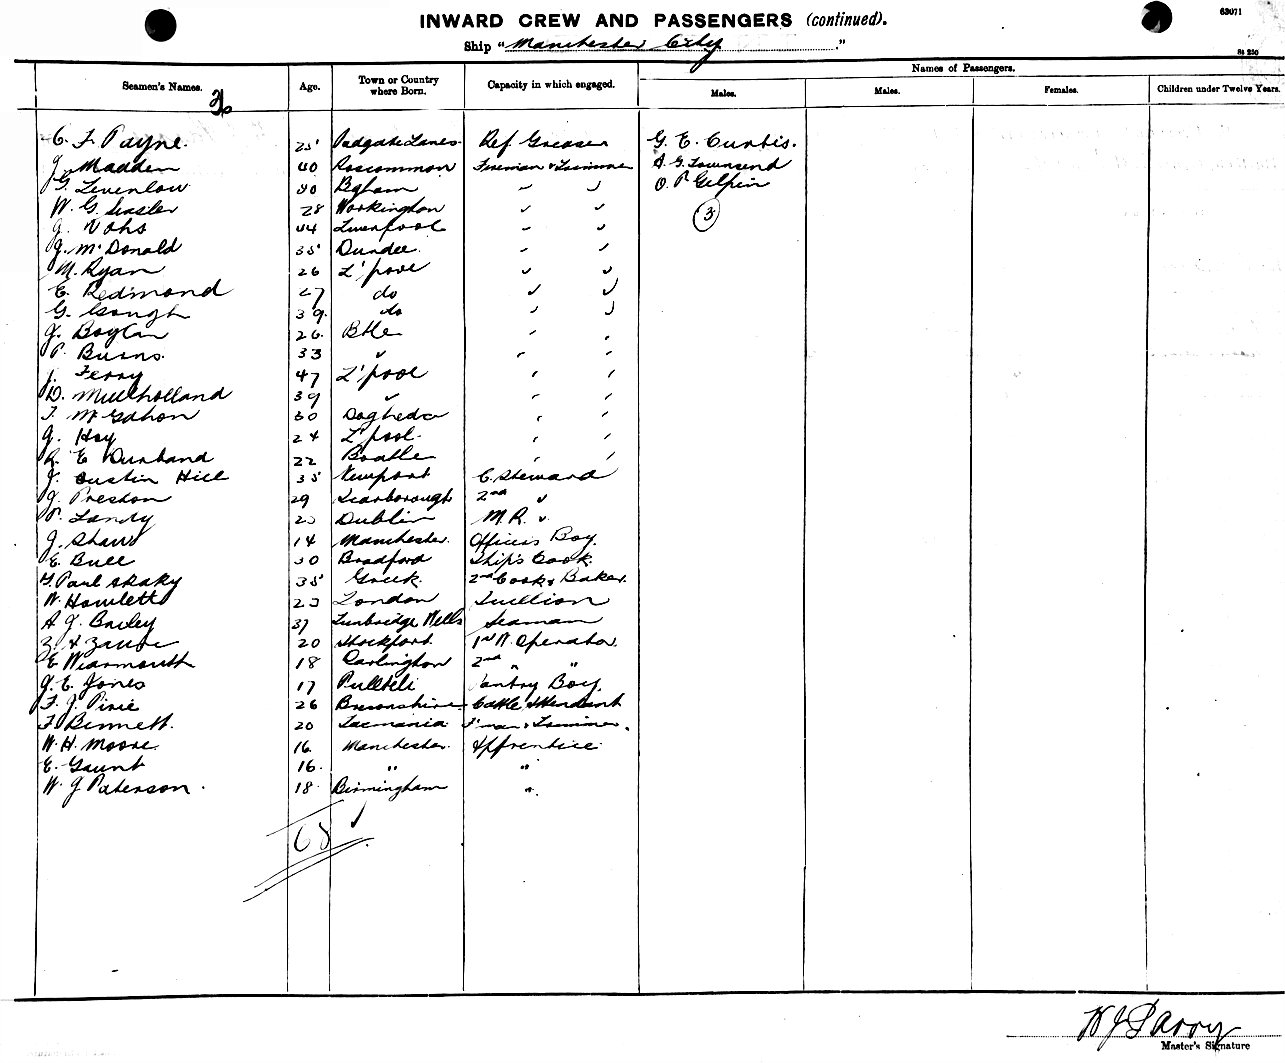 INWARD CREW AND PASSENGERS (continued).
63071
Ship "Manchester City"
Seamen's Names. Age. Town or Country where Born. Capacity in which engaged. Names of Passengers.
Males. Males. Females. Children under Twelve Years.
C. F. Payne. 25 Padgate Lancs. Ref. Greaser G. E. Curtis.
J. Madden 40 Roscommon Fireman & Trimmer A. G. Townsend
G. Levenlow 30 " " O. P. Gelpin
W. G. 28 Workington " " 3
J. Vohs 44 Liverpool " "
J. McDonald 35 Dundee " "
M. Ryan 26 L'pool " "
E. Redmond 27 do " "
G. Gough 39 do " "
J. Boylan 26 Btle " "
P. Burns. 33 " " "
J. Ferry 47 L'pool " "
D. Mulholland 39 " " "
T. McGahon 30 Dogheda " "
J. Hoy 24 L'pool. " "
R. E. Durband 22 Bootle " "
J. Austin Hill 35 Newport C. Steward
J. Preston 29 Scarborough 2nd "
P. Landy Dublin M.R. "
J. Shaw 14 Manchester. Officers Boy.
E. Bull 30 Bradford Ship's Cook.
35 Greek. 2nd Cook & Baker.
W. Howlett London Scullion
A. J. Bailey 37 Tunbridge Wells Seaman
20 Stockport. 1st W. Operator.
E. Wearmouth 18 Darlington 2nd " "
J. E. Jones 17 Pullheli Pantry Boy.
F. J. Pirie 26 Cattle Attendant
F. Bennett. 20 Tasmania F'man & Trimmer.
W. H. Moore. 16. Manchester. Apprentice.
E. Gaunt 16. " "
W. J. Paterson. 18. Birmingham "
68
W J Parry
Master's Signature